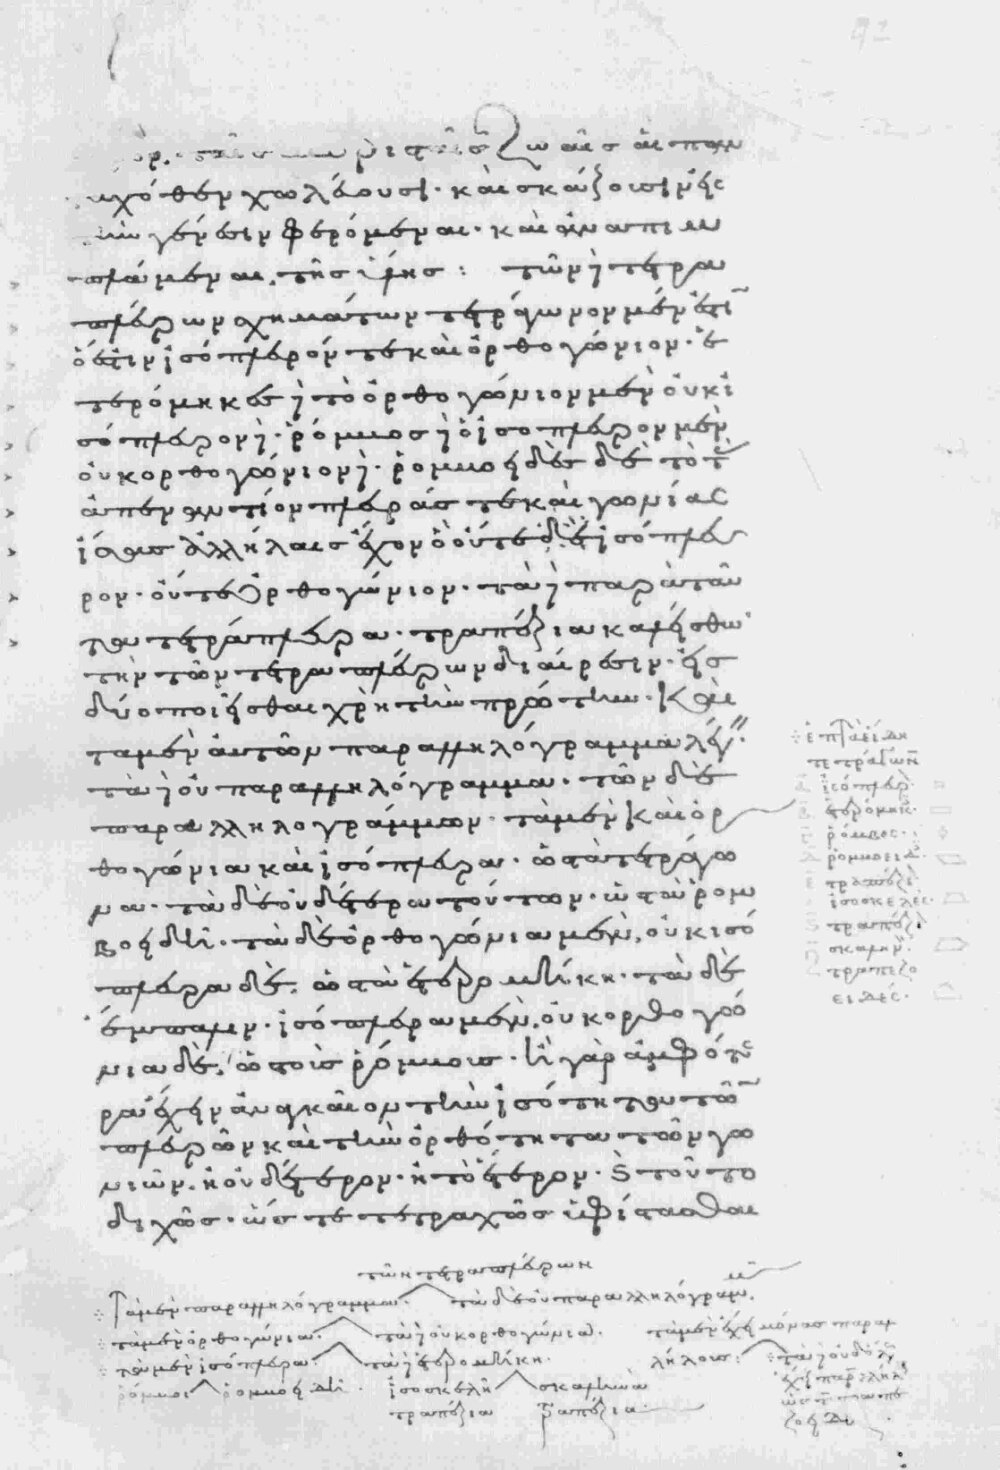 αχόθεν χωλεύουσι· καὶ σκάζουσι εἰς
γένεσιν φερόμεναι· καὶ ἀναπιμ
πλάμεναι τῆς ὕλης: τῶν δὲ τετρα
πλεύρων σχημάτων τετράγωνον μέν ἐστιν
ὅ ἐστιν ἰσόπλευρόν τε καὶ ὀρθογώνιον· ἑ
τερόμηκες δὲ τὸ ὀρθογώνιον μὲν οὐκ ἰ
σόπλευρον δέ· ῥόμβος δὲ ὃ ἰσόπλευρον μὲν
οὐκ ὀρθογώνιον δέ· ῥομβοειδὲς δὲ τὸ τὰς
ἀπεναντίον πλευράς τε καὶ γωνίας
ἴσας ἀλλήλαις ἔχον ὃ οὔτε δέ ἰσόπλευ
ρον· οὔτε ὀρθογώνιον· τὰ δὲ παρὰ ταῦ
τα τετράπλευρα· τραπέζια καλείσθω
τὴν τῶν τετραπλεύρων διαίρεσιν· εἰς
δύο ποιεῖσθαι χρὴ τὴν πρώτην· καὶ
τὰ μὲν αὐτῶν παραλληλόγραμμα λέγειν
τὰ δὲ οὐ παραλληλόγραμμα· τῶν δὲ
παραλληλογράμμων· τὰ μὲν καὶ ὀρ
θογώνια καὶ ἰσόπλευρα· ὡς τὰ τετράγω
να· τὰ δὲ οὐδέτερα τούτων· ὡς τὰ ῥομ
βοειδῆ· τὰ δὲ ὀρθογώνια μέν, οὐκ ἰσό
πλευρα δέ, ὡς τὰ ἑτερομήκη· τὰ δὲ
ἔμπαλιν· ἰσόπλευρα μέν, οὐκ ὀρθογώ
νια δέ, ὡς τοὺς ῥόμβους· ἢ γὰρ ἀμφότε
ρα ἔχειν ἀναγκαῖον τὴν ἰσότητα τῶν
πλευρῶν καὶ τὴν ὀρθότητα τῶν γω
νιῶν· ἢ οὐδέτερον· ἢ τὸ ἕτερον· καὶ τοῦτο
διχῶς· ὥστε τετραχῶς ὑφίστασθαι
τετράγωνον
ἰσόπλευρον
ἑτερόμηκες
ῥόμβος
ῥομβοειδές
τραπέζιον
ἰσοσκελές
τραπέζιον
σκαληνόν
τραπεζο
ειδές·
τῶν τετραπλεύρων
τὰ μὲν παραλληλόγραμμα· τὰ δὲ οὐ παραλληλόγραμμα
τὰ μὲν ὀρθογώνια· τὰ δὲ οὐκ ὀρθογώνια· τὰ μὲν ἔχει μόνας παραλ
τὰ μὲν ἰσόπλευρα· τὰ δὲ ἑτερομήκη· λήλους· τὰ δὲ οὐδόλως
ῥόμβοι ῥομβοειδῆ· ἰσοσκελῆ σκαληνὰ ἔχει παραλλήλους
τραπέζια τραπέζια
ζοειδῆ